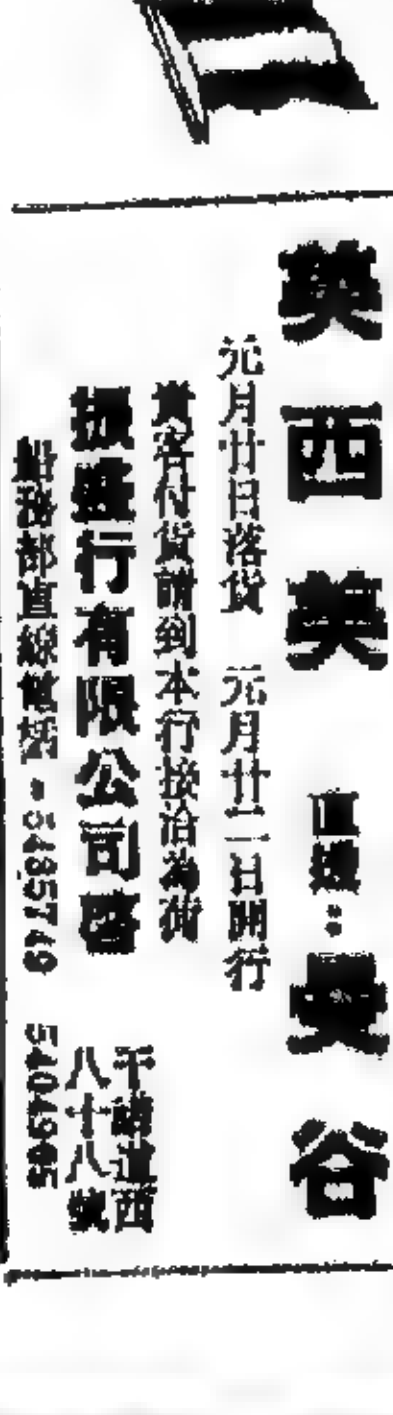 英西英 直達：曼谷
元月廿日落貨 元月廿二日開行
貴客付貨請到本行接洽為荷
振盛行有限公司啓
干諾道西
八十八號
船務部直線電話・5485749 5404965